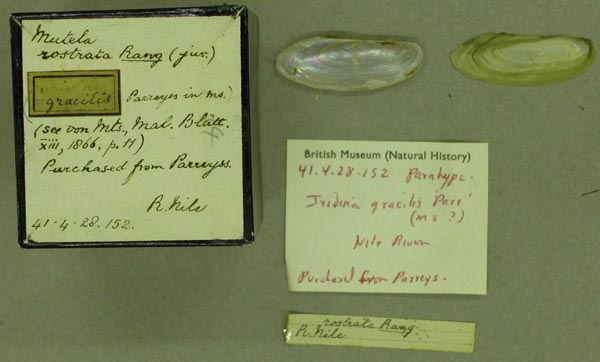 Mutela
rostrata Rang (juv.)
gracilis Parreyss in ms.)
(see von Mts., Mal. Blätt.
xiii, 1866, p. 11)
Purchased from Parreyss.
R. Nile
41-4-28.152.
British Museum (Natural History)
41.4.28.152 Paratype.
Iridina gracilis 'Parr'
(ms?)
Nile River
Purchased from Parreys.
rostrata Rang
R. Nile